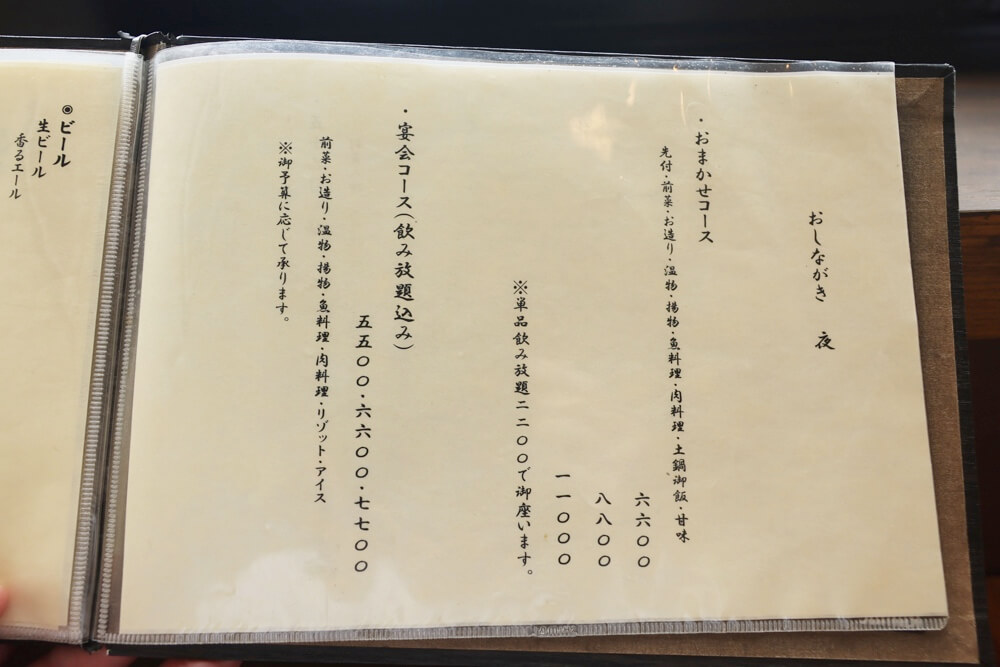 おしながき　夜
・おまかせコース
先付・前菜・お造り・温物・揚物・魚料理・肉料理・土鍋御飯・甘味
六六〇〇
八八〇〇
一一〇〇〇
※単品飲み放題二二〇〇で御座います。
・宴会コース（飲み放題込み）
五五〇〇・六六〇〇・七七〇〇
前菜・お造り・温物・揚物・魚料理・肉料理・リゾット・アイス
※御予算に応じて承ります。
◉ビール
生ビール
香るエール